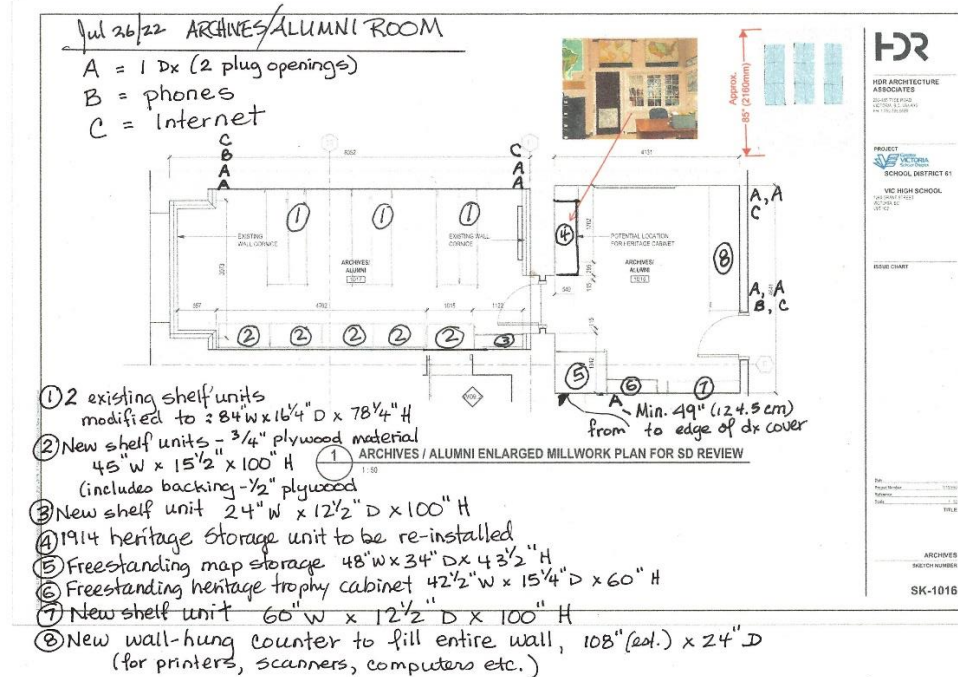 Jul 26/22 ARCHIVES/ALUMNI ROOM
A = 1 Dx (2 plug openings)
B = phones
C = Internet
Approx.
85" (2160mm)
HDR
HDR ARCHITECTURE
ASSOCIATES
PROJECT
Greater
VICTORIA
School District
SCHOOL DISTRICT 61
VIC HIGH SCHOOL
ISSUE CHART
C
B
A
A
C
A
A
4131
A, A
C
1
1
1
4
8
EXISTING
WALL CORNICE
EXISTING WALL
CORNICE
POTENTIAL LOCATION
FOR HERITAGE CABINET
ARCHIVES/
ALUMNI
ARCHIVES/
ALUMNI
1016
A, A
B, C
1015
2
2
2
2
2
3
5
6
7
A
Min. 49" (124.5 cm)
from to edge of dx cover
1 ARCHIVES / ALUMNI ENLARGED MILLWORK PLAN FOR SD REVIEW
1 : 50
① 2 existing shelf units
modified to : 84"W x 16 1/4" D x 78 1/4" H
② New shelf units - 3/4" plywood material
45"W x 15 1/2" x 100" H
(includes backing - 1/2" plywood
③ New shelf unit 24" W x 12 1/2" D x 100" H
④ 1914 heritage storage unit to be re-installed
⑤ Freestanding map storage 48"W x 34" D x 43 1/2" H
⑥ Freestanding heritage trophy cabinet 42 1/2"W x 15 1/4" D x 60" H
⑦ New shelf unit 60"W x 12 1/2" D x 100" H
⑧ New wall-hung counter to fill entire wall, 108" (est.) x 24" D
(for printers, scanners, computers etc.)
TITLE
ARCHIVES
SKETCH NUMBER
SK-1016